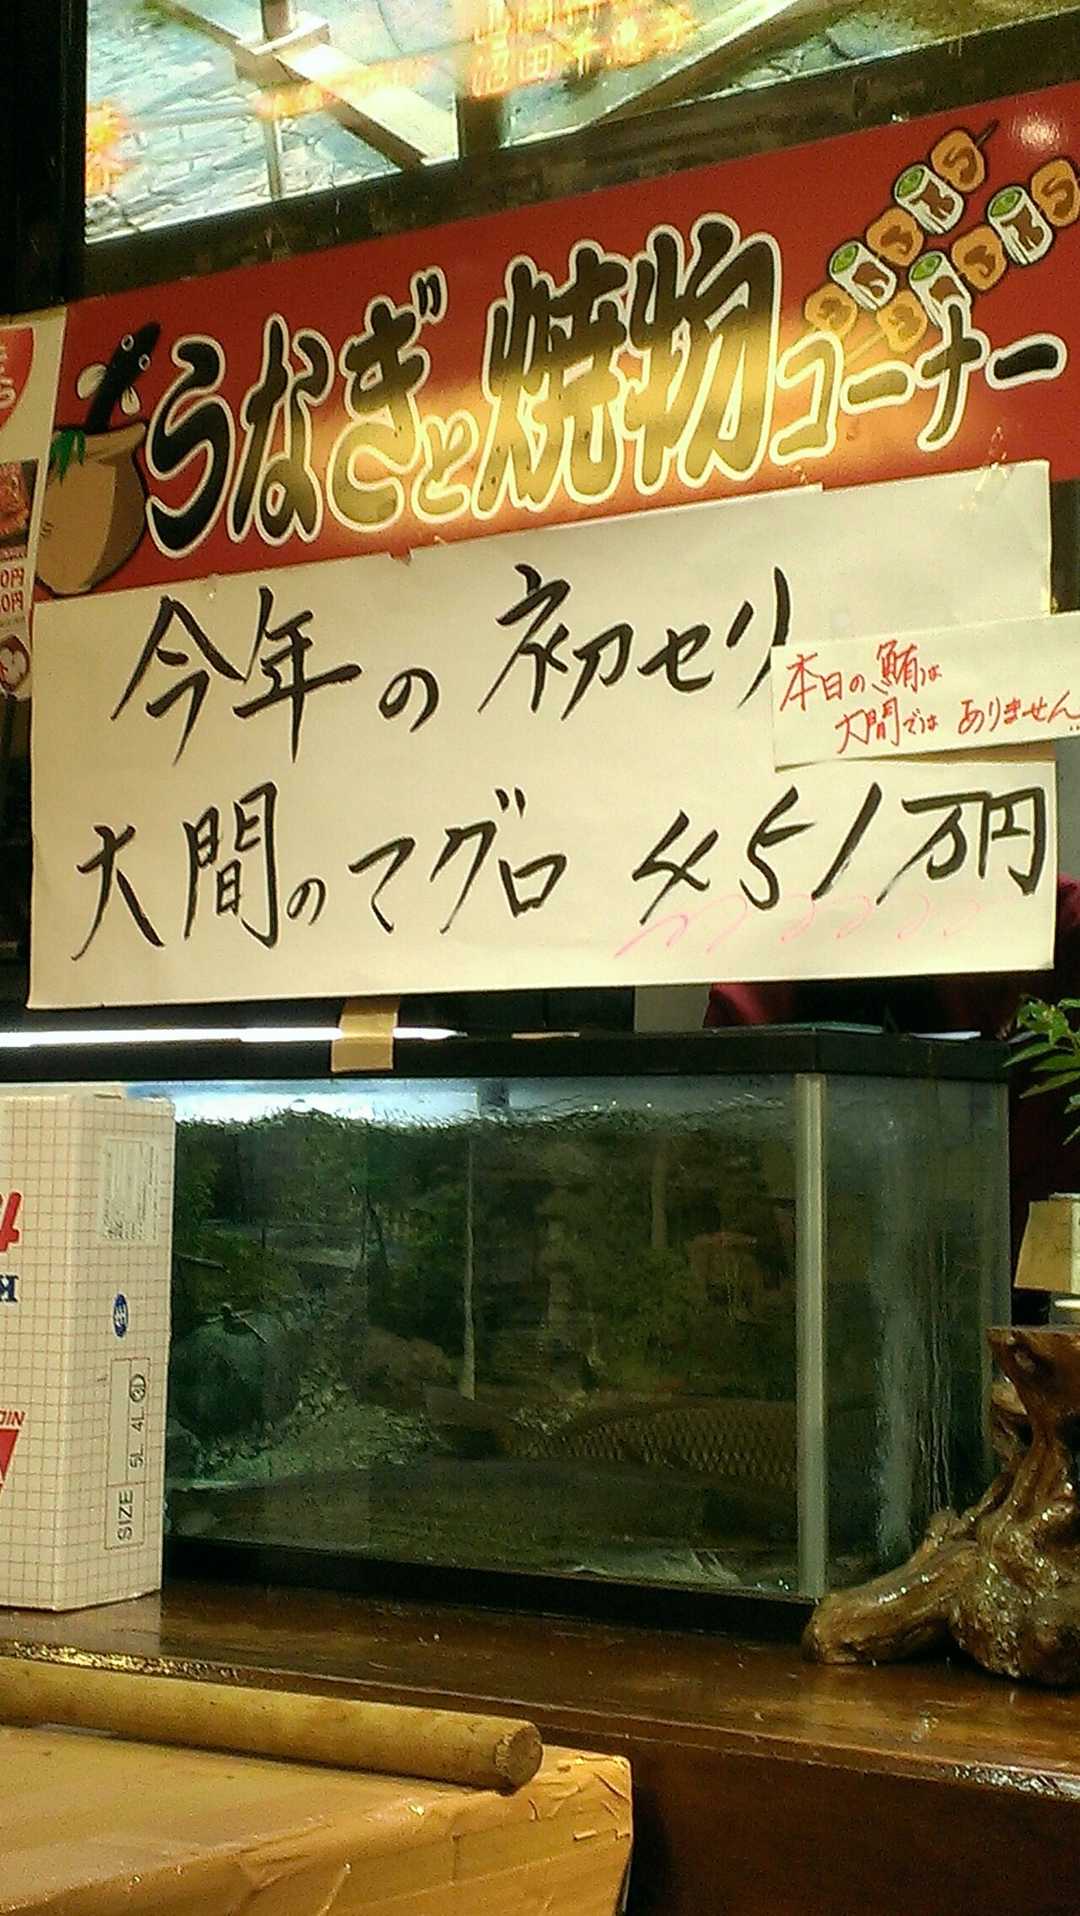 うなぎと焼物コーナー
今年の初セリ
本日の鮪は
大間ではありません
大間のマグロ 451万円
0円
0円
SIZE 5L 4L 3D